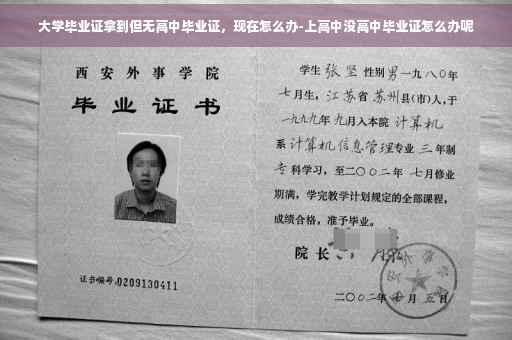 大学毕业证拿到但无高中毕业证，现在怎么办-上高中没高中毕业证怎么办呢
西安外事学院
毕业证书
证书编号:0209130411
学生 张坚 性别男 一九八〇年
七月生, 江苏省 苏州县(市)人,于
一九九九年 九月入本院 计算机
系 计算机信息管理专业 三 年制
专科学习, 至二〇〇二年 七月修业
期满, 学完教学计划规定的全部课程,
成绩合格, 准予毕业。
院长
二〇〇二年 月 五日